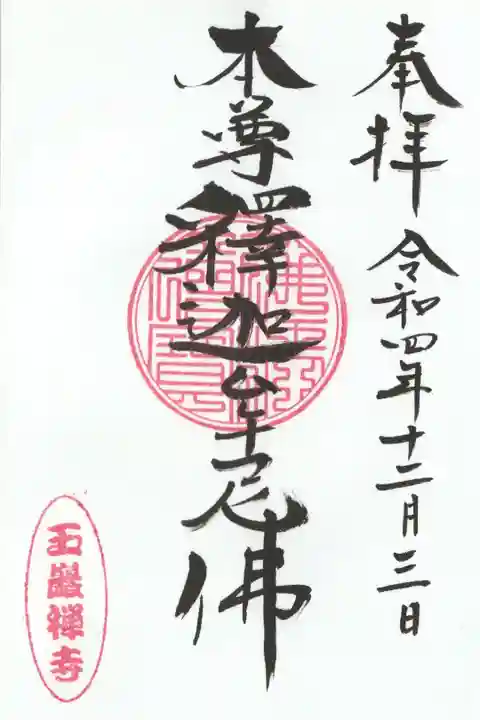 奉拝 令和四年十二月三日
本尊釋迦牟尼佛
玉巌禅寺